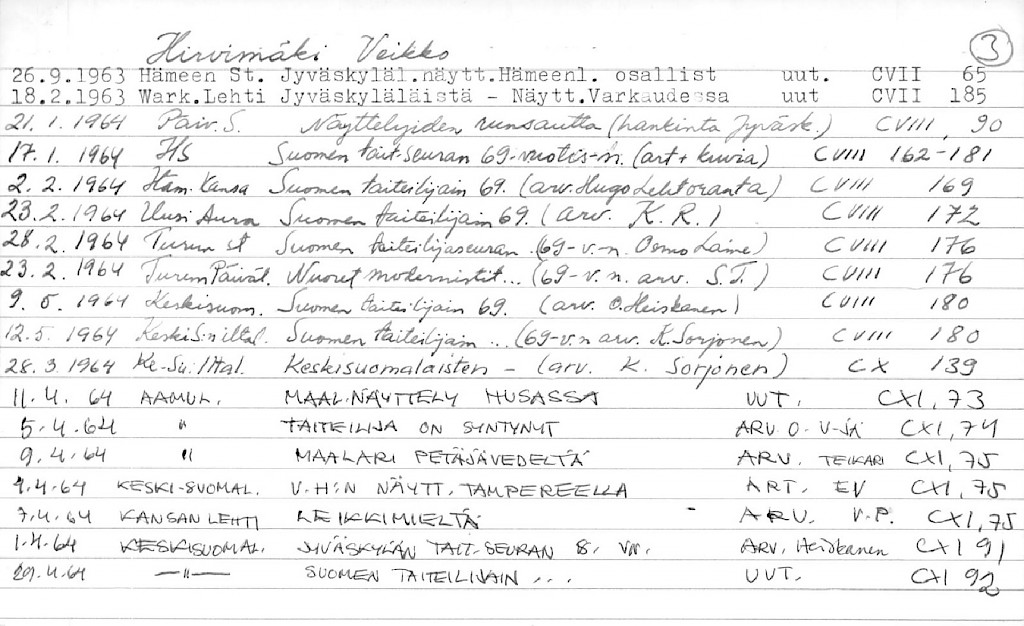 Hirvimäki Veikko 3
26.9.1963 Hämeen St. Jyväskyläl.näytt.Hämeenl. osallist uut. CVII 65
18.2.1963 Wark.Lehti Jyväskyläläistä - Näytt.Varkaudessa uut CVII 185
21.1.1964 Päiv.S. Näyttelyiden runsautta (hankinta Jyväsk.) CVIII, 90
17.1.1964 HS Suomen tait.seuran 69-vuotis-n. (art + kuvia) CVIII 162-181
2.2.1964 Häm.Kansa Suomen taiteilijain 69. (arv.Hugo Lehtoranta) CVIII 169
23.2.1964 Uusi Aura Suomen taiteilijain 69. (arv. K.R.) CVIII 172
28.2.1964 Turun st Suomen taiteilijaseuran (69-v.n. Osmo Laine) CVIII 176
23.2.1964 Turun Päivät. Nuoret modernistit... (69-v.n. arv. S.T.) CVIII 176
9.5.1964 Keskisuom. Suomen taiteilijain 69. (arv. O.Heiskanen) CVIII 180
12.5.1964 KeskiS:n iltal. Suomen taiteilijain ... (69-v.n arv. K.Sorjonen) CVIII 180
28.3.1964 Ke-Su.Iltal. Keskisuomalaisten - (arv. K. Sorjonen) CX 139
11.4.64 AAMUL. MAAL.NÄYTTELY HUSASSA UUT. CXI, 73
5.4.64 " TAITEILIJA ON SYNTYNYT ARV. O.V-JÄ CXI, 74
9.4.64 " MAALARI PETÄJÄVEDELTÄ ARV. TEIKARI CXI, 75
9.4.64 KESKI-SUOMAL. V.H:N NÄYTT. TAMPEREELLA ART. EV CXI, 75
7.4.64 KANSAN LEHTI LEIKKIMIELTÄ - ARV. V.P. CXI, 75
1.4.64 KESKISUOMAL. JYVÄSKYLÄN TAIT.SEURAN 8. VN. ARV. Heiskanen CXI 91
29.4.64 —"— SUOMEN TAITEILIJAIN ... UUT. CXI 92